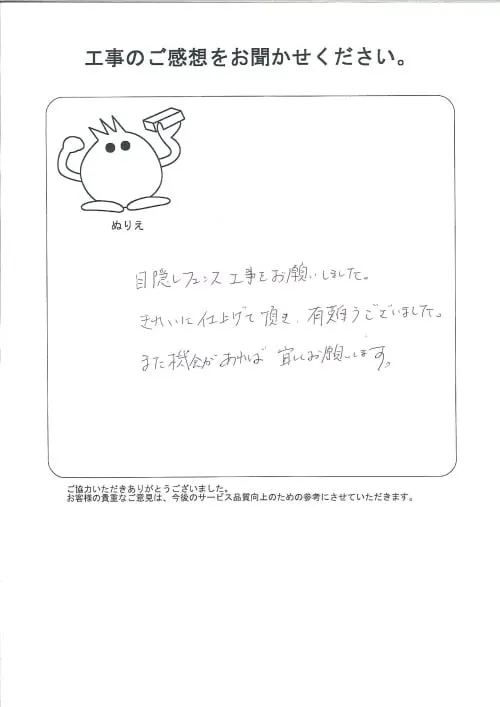 工事のご感想をお聞かせください。
ぬりえ
目隠しフェンス工事をお願いしました。
きれいに仕上げて頂き、有難うございました。
また機会があれば宜しくお願いします。
ご協力いただきありがとうございました。
お客様の貴重なご意見は、今後のサービス品質向上のための参考にさせていただきます。